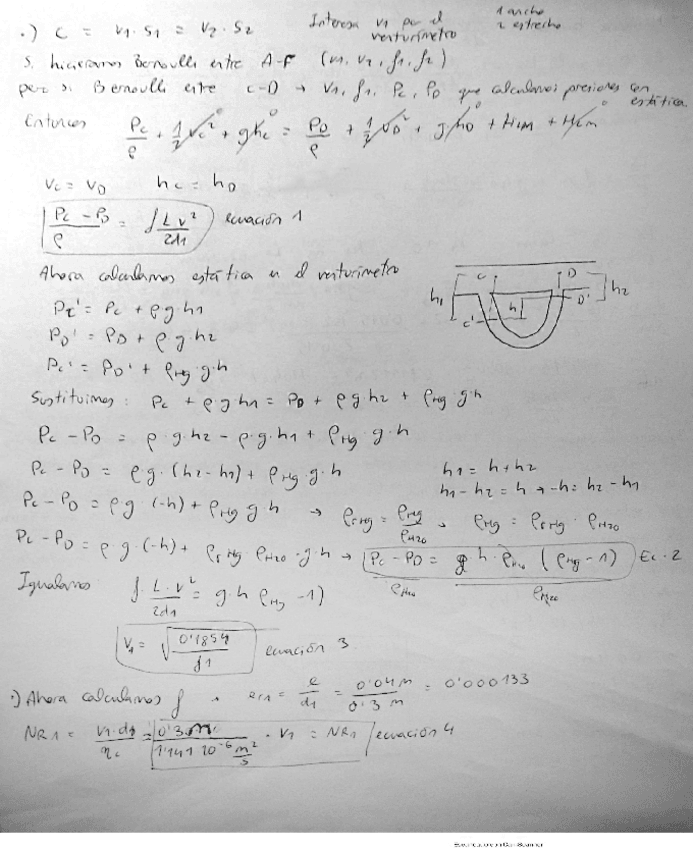 ·) C = V1·S1 = V2·S2 Interesa V1 por el venturímetro 1 ancho 2 estrecho
Si hiciéramos Bernoulli entre A-F (V1, V2, f1, f2)
pero si Bernoulli entre C-D → V1, f1, Pc, PD que calculamos presiones con estática
Entonces Pc/ρ + 1/2 Vc² + ghc = PD/ρ + 1/2 VD² + ghD + HLM + HLm
Vc = VD hc = hD
Pc - PD/ρ = f L V²/2d1 ecuación 1
Ahora calculamos estática en el venturímetro
Pc' = Pc + ρ g h1
PD' = PD + ρ·g·h2
Pc' = PD' + ρHg·g·h
h1 C D h2 h C' D'
Sustituimos: Pc + ρ·g h1 = PD + ρ g h2 + ρHg·g·h
Pc - PD = ρ·g·h2 - ρ·g·h1 + ρHg g·h
Pc - PD = ρ g·(h2-h1) + ρHg·g·h h1 = h + h2
h1 - h2 = h → -h = h2 - h1
Pc - PD = ρ g (-h) + ρHg g h → ρrHg = ρHg/ρH2O → ρHg = ρrHg·ρH2O
Pc - PD = ρ g·(-h) + ρrHg·ρH2O·g·h → Pc - PD = g h·ρH2O (ρHg - 1) Ec. 2
ρH2O ρH2O
Igualamos f·L·V²/2d1 = g·h ρHg - 1)
V1 = √0'1854/f1 ecuación 3
·) Ahora calculamos f → er1 = e/d1 = 0'04 m/0'3 m = 0'000133
NR1 = V1·d1/ηc = 0'3 m/1'141 10⁻⁶ m²/s · V1 = NR1 ecuación 4